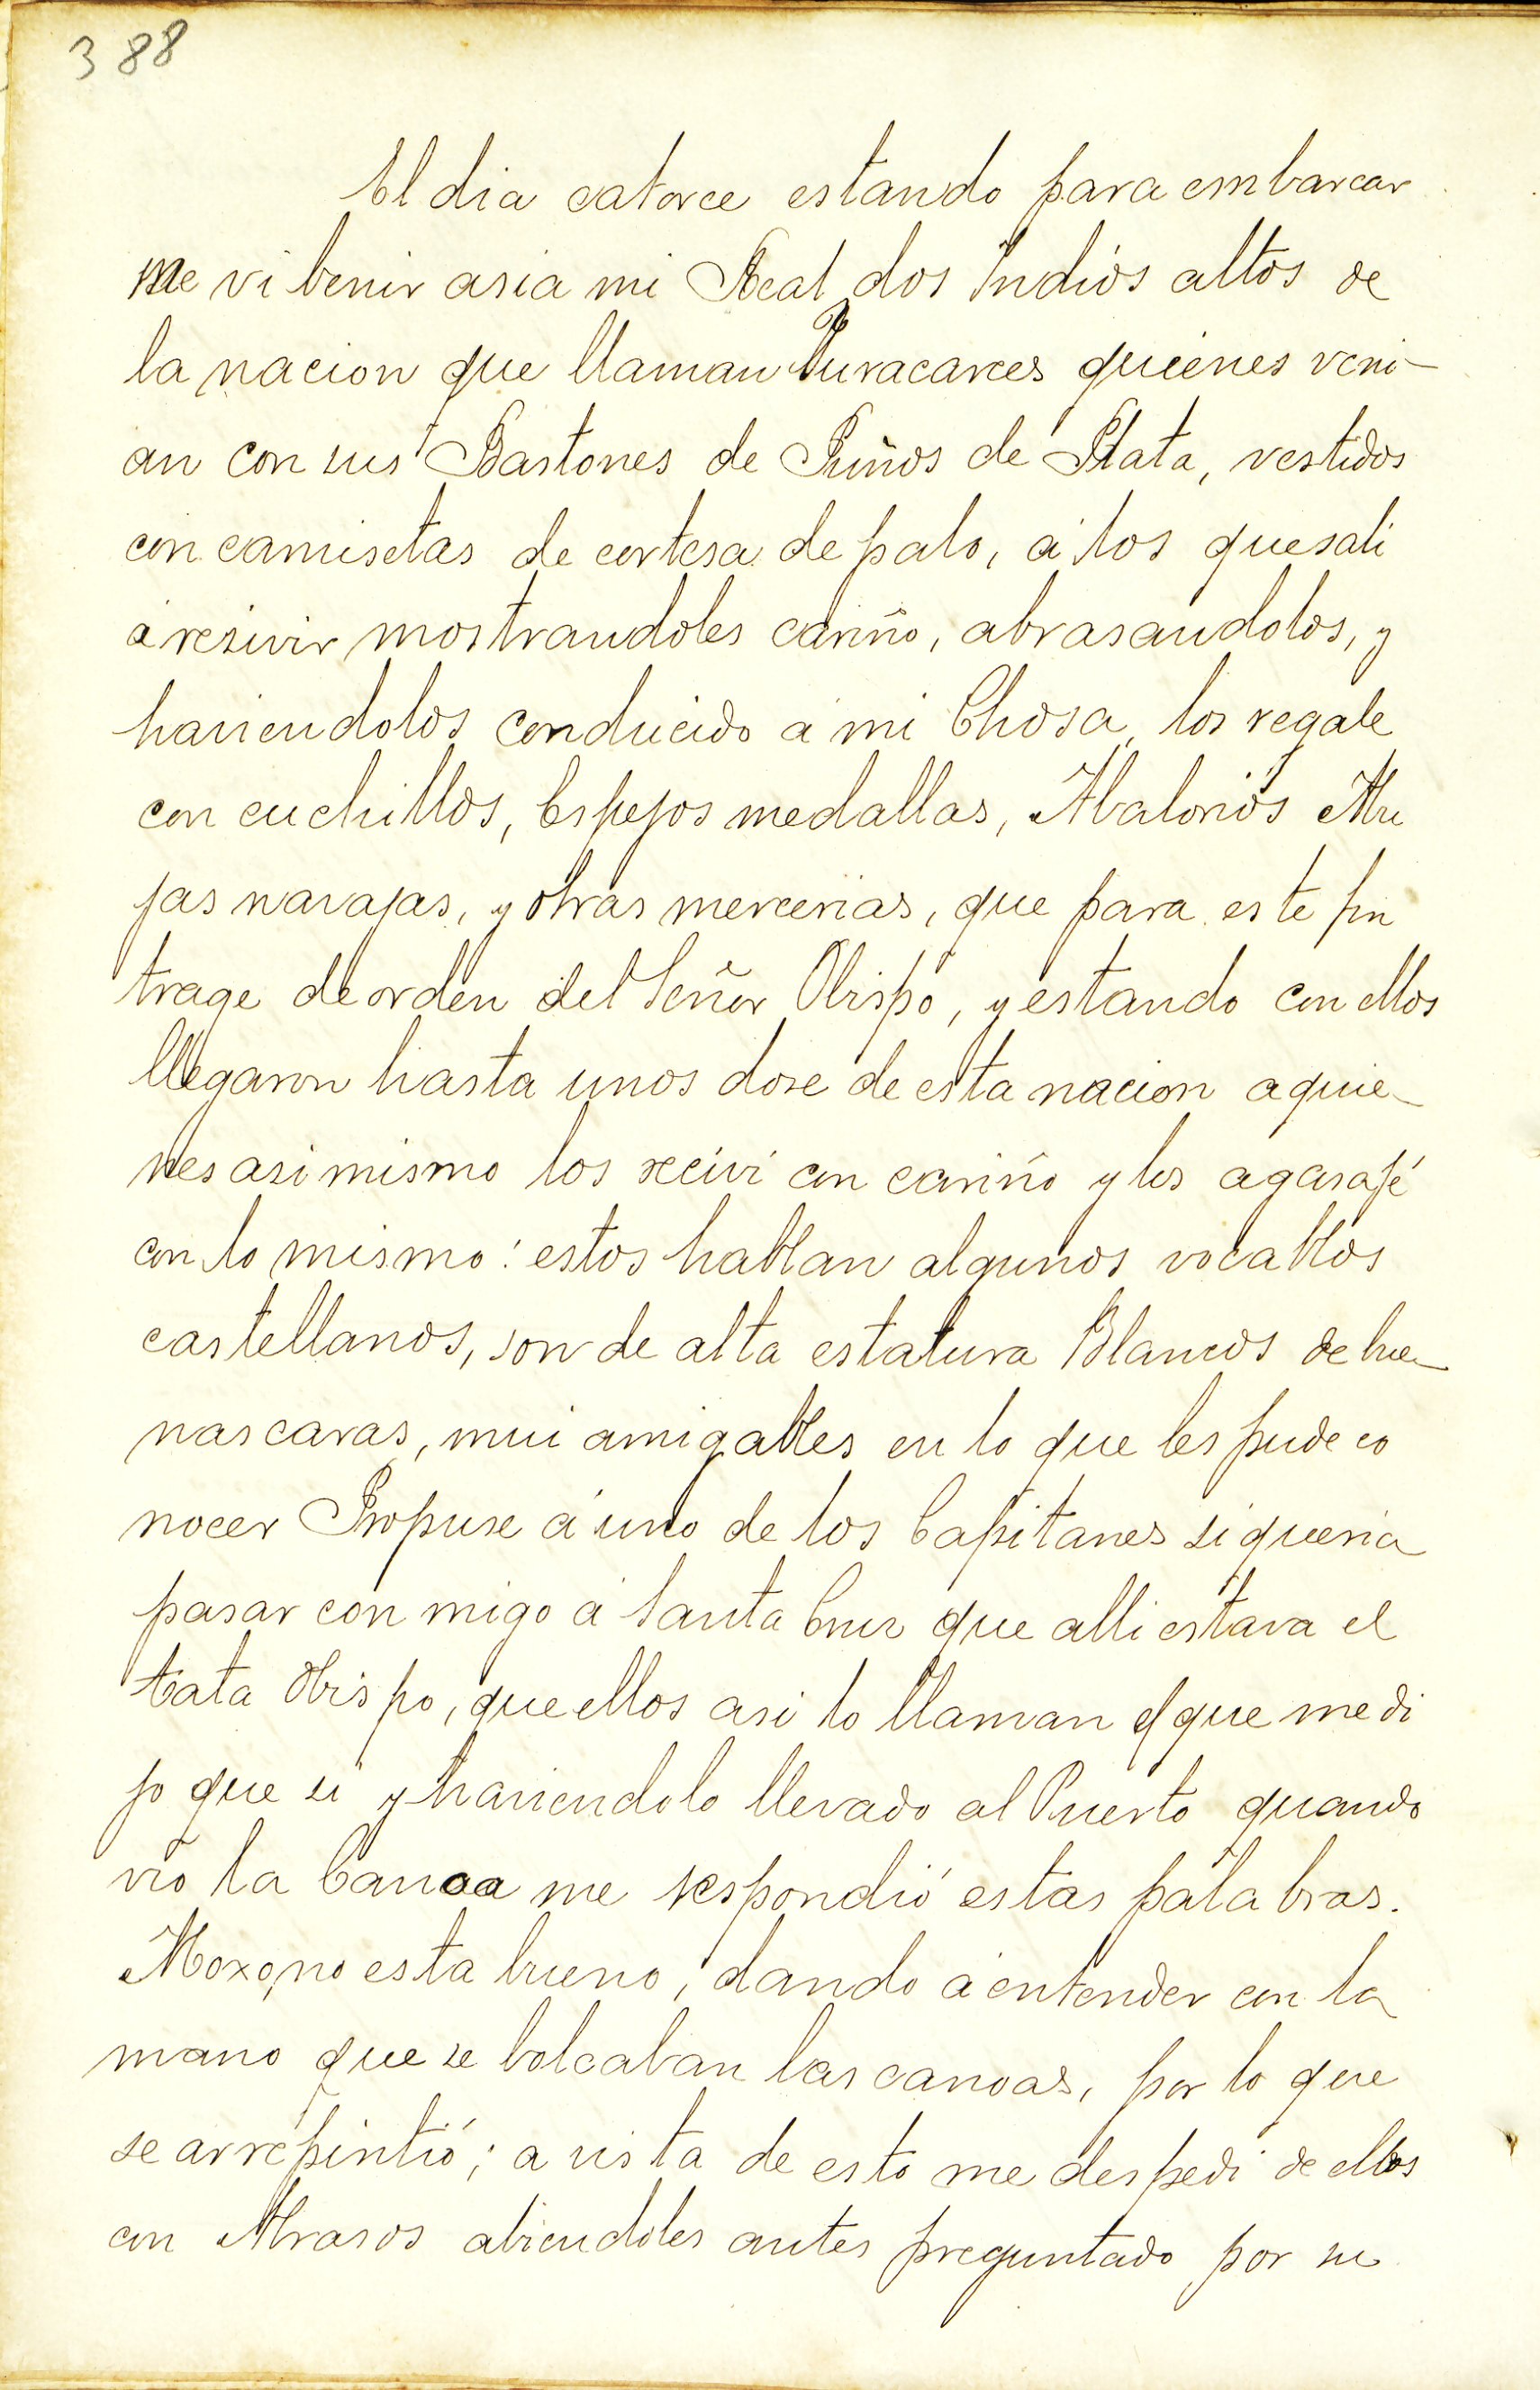 388
El dia catorce estando para embarcar
me vi benir asia mi Real dos Indios altos de
la nacion que llaman Yuracarees quienes veni-
an con sus Bastones de Puños de Plata, vestidos
con camisetas de cortesa de palo, á los que sali
á resivir mostrandoles cariño, abrasandolos, y
haviendolos conducido a mi Chosa, los regale
con cuchillos, Espejos medallas, Abalorios Abu
jas navajas, y otras mercerias, que para este fin
trage de orden del Señor Obispo, y estando con ellos
llegaron hasta unos dose de esta nacion a quie-
nes asi mismo los recivi con cariño y los agasajé
con lo mismo: estos hablan algunos vocablos
castellanos, son de alta estatura Blancos de bue-
nas caras, mui amigables en lo que les pude co
nocer Propuse á uno de los Capitanes si queria
pasar con migo á Santa Cruz que alli estava el
tata Obispo, que ellos asi lo llaman el que me di
jo que si y haviendolo llevado al Puerto quando
vio la Canoa me respondió estas palabras.
Moxo, no esta bueno, dando á entender con la
mano que se bolcaban las canoas, por lo que
se arrepintió; a vista de esto me despedi de ellos
con Abrasos abiendoles antes preguntado por su